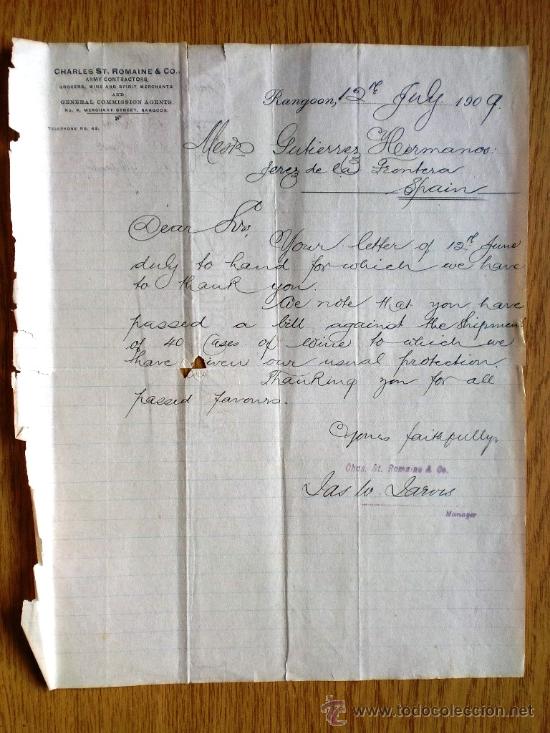 CHARLES ST. ROMAINE & CO.,
ARMY CONTRACTORS,
GROCERS, WINE AND SPIRIT MERCHANTS
AND
GENERAL COMMISSION AGENTS.
MERCHANT STREET, RANGOON.
TELEPHONE NO. 42.
Rangoon, 12th July 1909.
Messrs Gutierrez Hermanos.
Jerez de la Frontera
Spain
Dear Sirs,
Your letter of 12th June
duly to hand for which we have
to thank you.
We note that you have
passed a bill against the Shipment
of 40 Cases of wine to which we
have given our usual protection.
Thanking you for all
passed favours.
Yours faithfully,
Chas. St. Romaine & Co.
Jas W. Jarvis
Manager
© www.todocoleccion.net